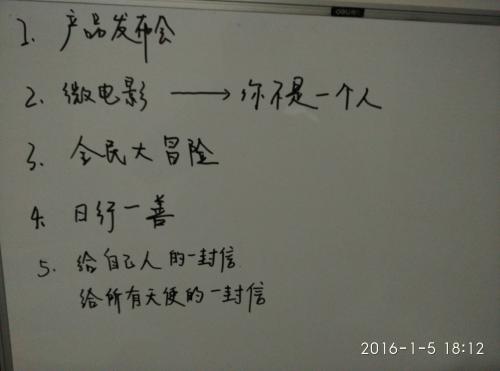 deli
1. 产品发布会
2. 微电影 → 你不是一个人
3. 全民大冒险
4. 日行一善
5. 给自己人的一封信
给所有天使的一封信
2016-1-5 18:12